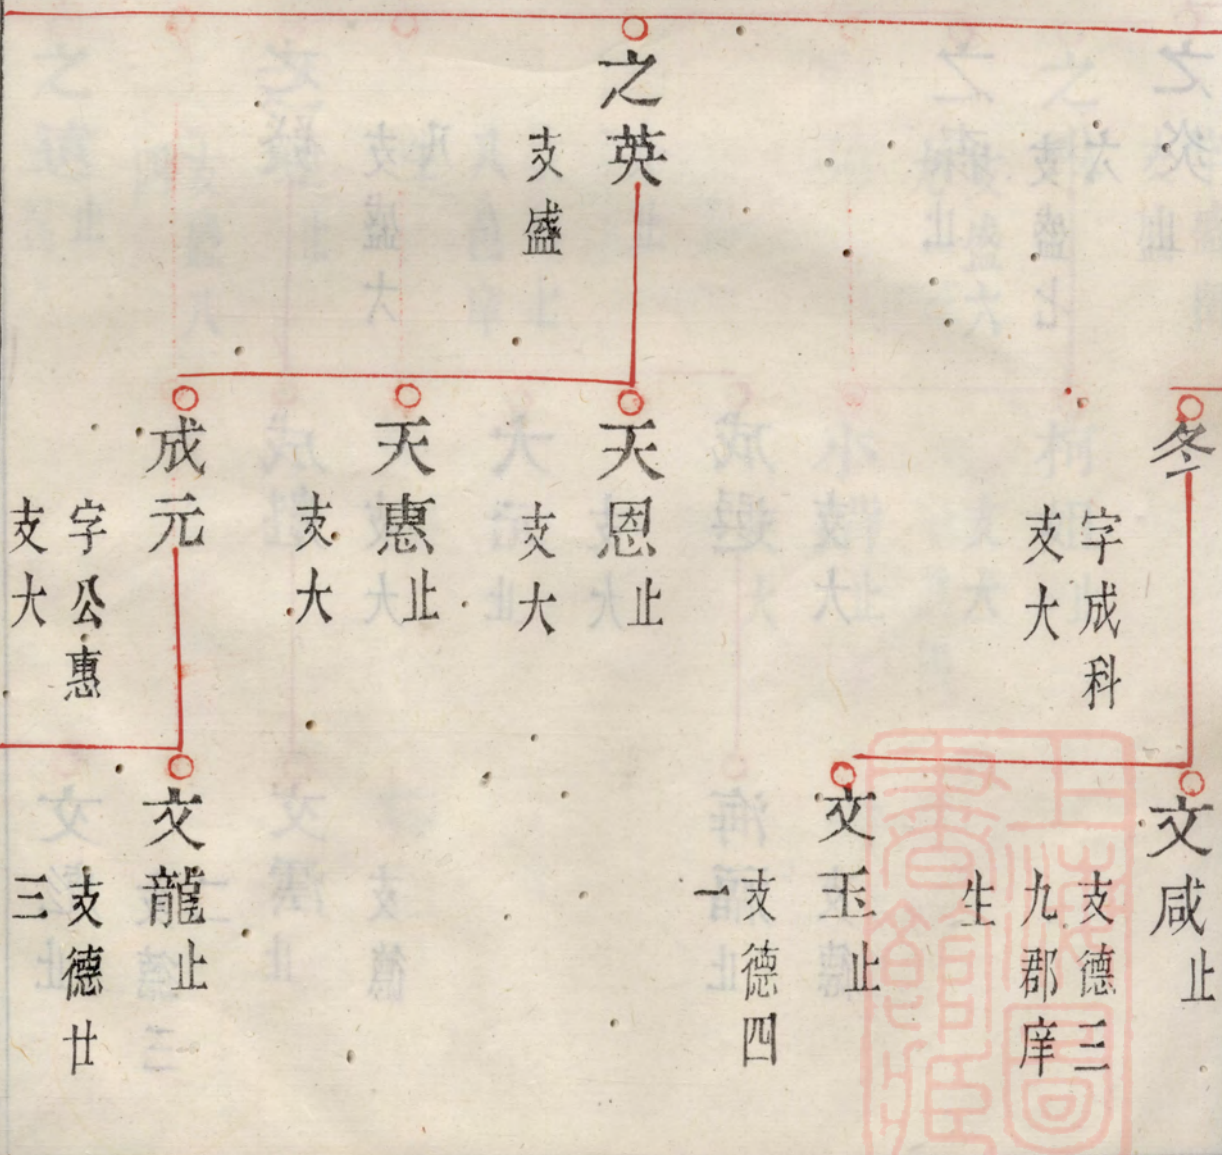 之英
支盛
冬
字成科
支大
天恩止
支大
天惠止
支大
成元
字公惠
支大
文咸止
支德三
九郡庠
生
文玉止
支德四
一
文龍止
支德廿
三
上海圖
書館藏